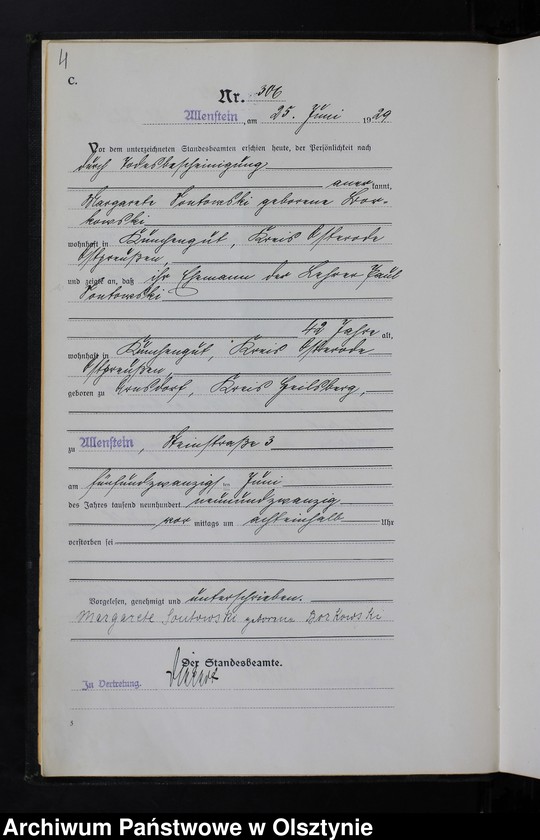 4
C.
Nr. 306
Allenstein, am 25. Juni 1929
Vor dem unterzeichneten Standesbeamten erschien heute, der Persönlichkeit nach
durch Todesbescheinigung
anerkannt,
Margarete Sontowski geborene Bor-
kowski
wohnhaft in Künchengut, Kreis Osterode
Ostpreußen,
und zeigte an, daß ihr Ehemann der Lehrer Paul
Sontowski
42 Jahre alt,
wohnhaft in Künchengut, Kreis Osterode
Ostpreußen,
geboren zu Arnsdorf, Kreis Heilsberg,
zu Allenstein, Steinstraße 3
am fünfundzwanzigsten Juni
des Jahres tausend neunhundert neunundzwanzig
vor mittags um achteinhalb Uhr
verstorben sei
Vorgelesen, genehmigt und unterschrieben.
Margarete Sontowski geborene Borkowski
Der Standesbeamte.
In Vertretung.
5
Archiwum Państwowe w Olsztynie